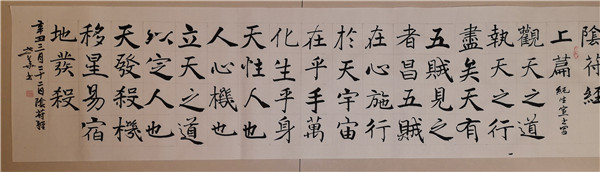 陰符經
上篇
觀天之道
執天之行
盡矣天有
五賊見之
者昌五賊
在心施行
於天宇宙
在乎手萬
化生乎身
天性人也
人心機也
立天之道
以定人也
天發殺機
移星易宿
地發殺
辛丑三月二十二日